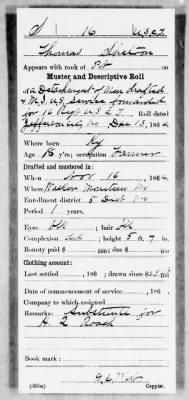 S 16 U.S.C.T.
Thomas Shelton
Appears with rank of Pvt on
Muster and Descriptive Roll
of a Detachment of Men drafted
& M.I. U.S. Service forwarded
for 16 Regt U.S.C.T. Roll dated
Jefferson City, Mo Dec 13, 1864.
Where born Ky
Age 18 y'rs; occupation Farmer
Drafted and mustered in:
When Nov 16, 1864.
Where Mo
Enr-dment district 5 Dist Mo
Period 1 years.
Eyes blk; hair blk
Complexion ; height 5 ft. 7 in.
Bounty paid $ 100; due $ 100
Clothing account:
Last settled , 186 ; drawn since $
Date of commencement of service , 186 .
Company to which assigned
Remarks: Substitute for
H. L. Roach
Book mark:
(386m) Copyist.